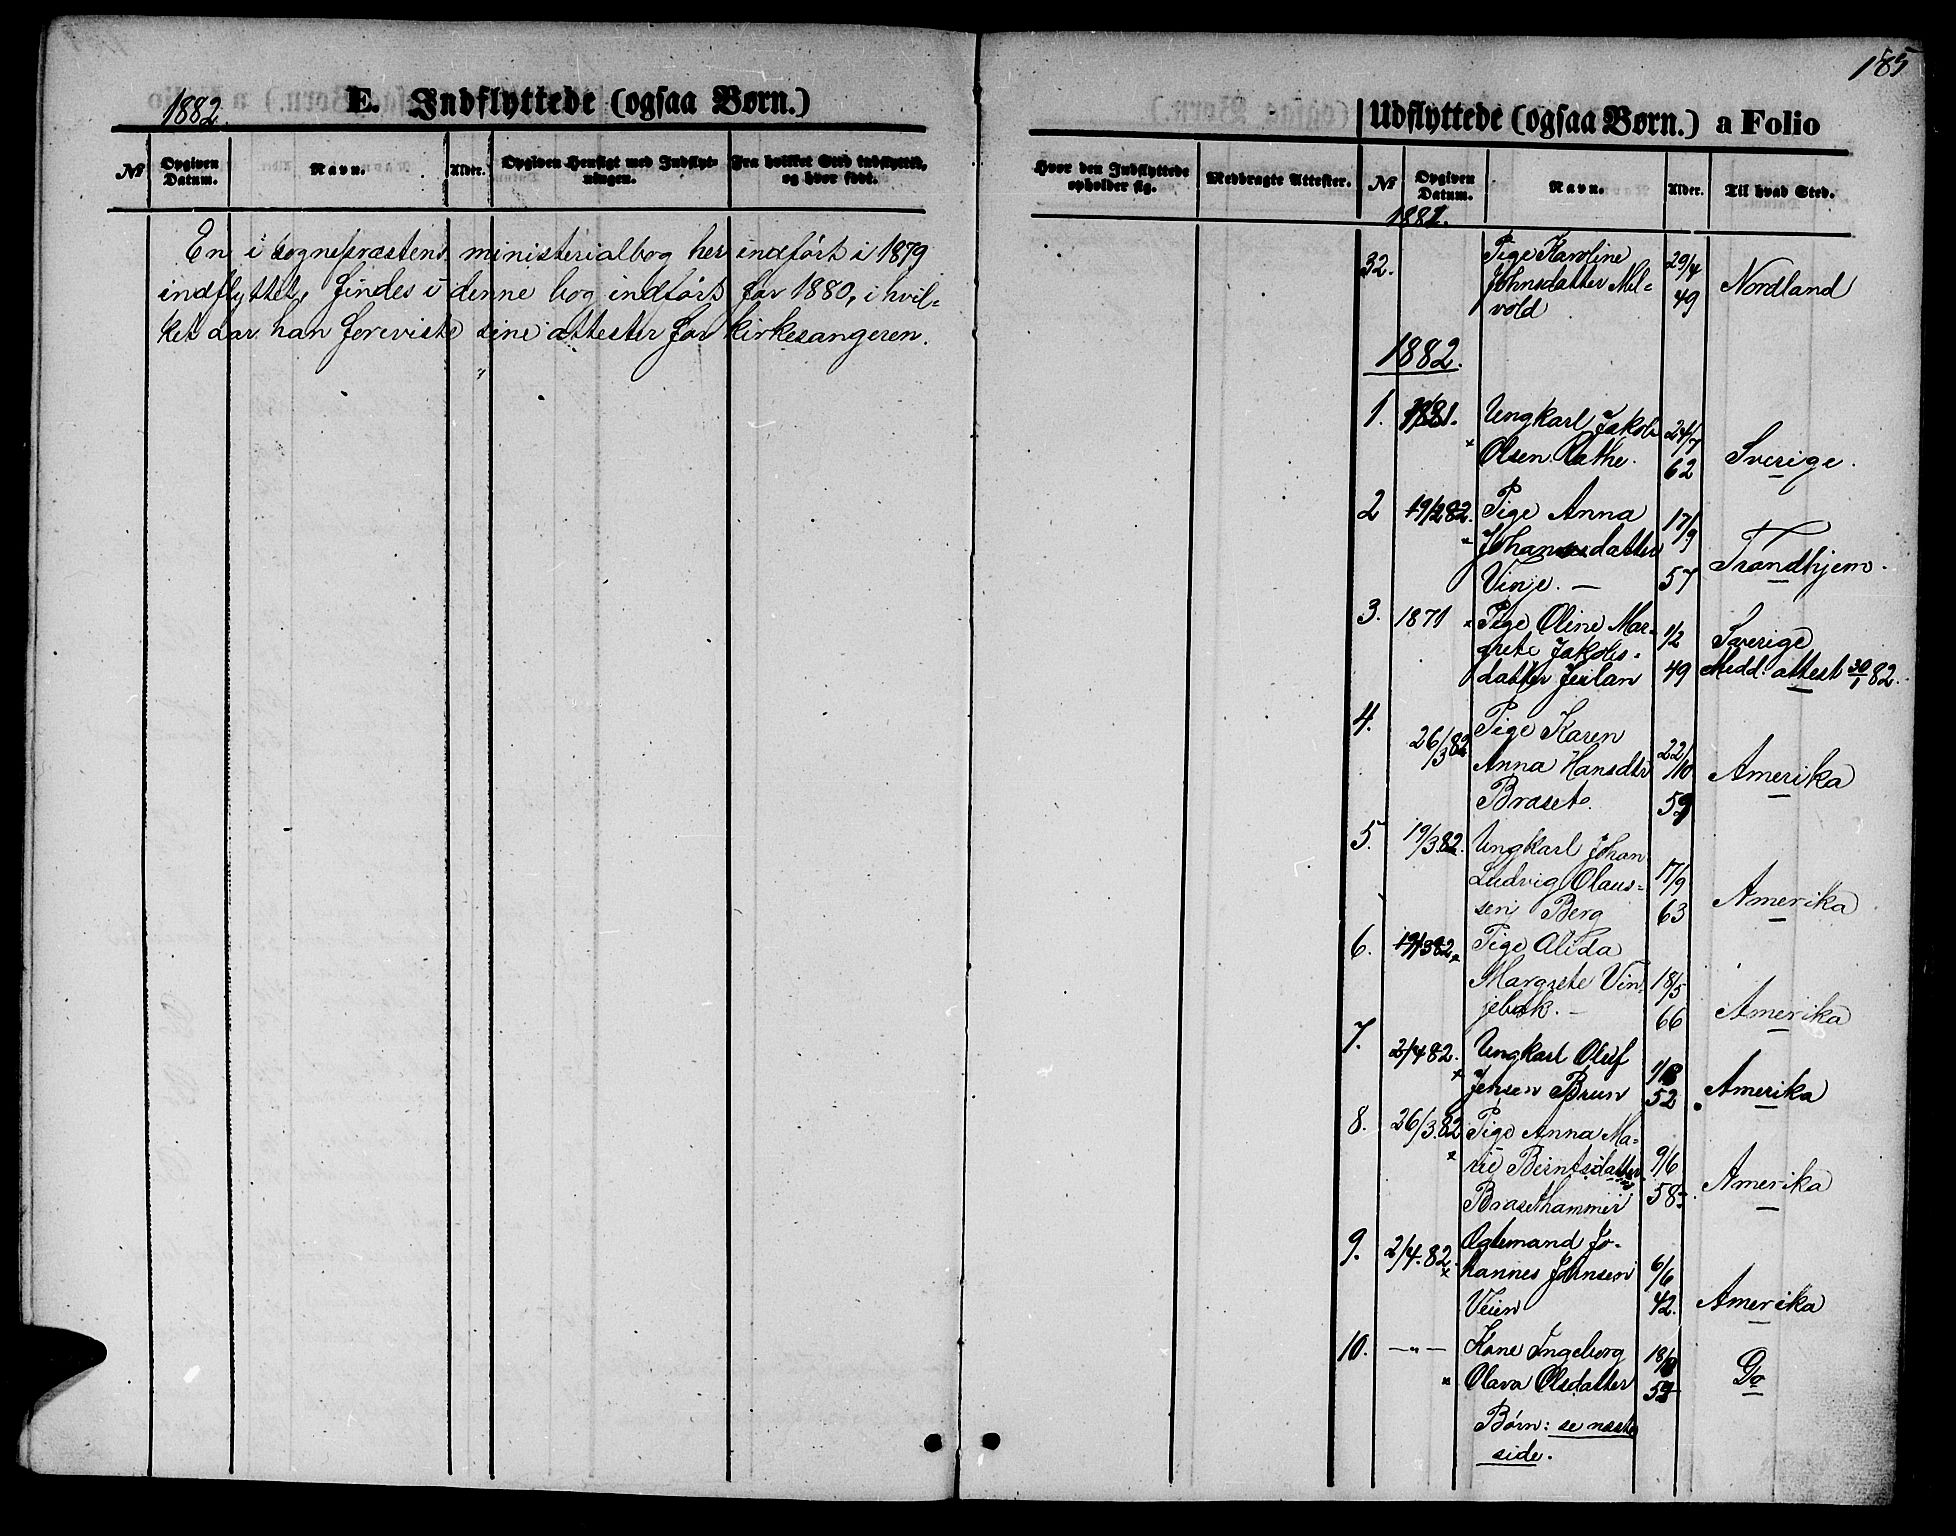 185
1882.
E. Indflyttede (ogsaa Børn.)
Udflyttede (ogsaa Børn.) a Folio
№ Opgiven Datum. Navn. Alder. Opgiven Hensigt med Indflyt-ningen. Fra hvilket Sted indflyttid, og hvor født.
Hvor den Indflyttede opholder sig. Medbragte Attester. № Opgiven Datum. Navn. Alder. Til hvad Sted.
En i sognepræstens ministerialbog her indført i 1879
indflyttet, findes i denne bog indført for 1880, i hvil-
ket aar han foreviste sine attester for kirkesangeren.
1881.
32. Pige Karoline 29/4
Johnsdatter Mel- Nordland
vold 49
1882.
1. 1881. Ungkarl Jakob 24/7
Olsen Rathe. 62 Sverige.
2 19/2 82. Pige Anna 17/9
Johansdatter
Vinje. — 57 Trondhjem.
3. 1871 Pige Oline Mar- 1/2 Sverige
grete Jakobs-
datter 49 Medd. attest 30/1 82.
4. Pige Karen
26/3 82 Anna Hansdtr 22/10 Amerika
Braset. 59
5. 19/3 82. Ungkarl Johan
Ludvig Olaus- 17/9 Amerika
sen Berg 63
6. 19/3 82. Pige Alida
Margrete Vin- 18/5
jebak. — 66 Amerika
7.
2/4 82. Ungkarl Oluf
Jensen Brun 52 Amerika
8. 26/3 82 Pige Anna Ma-
rie Berntsdatter 9/6 Amerika
Brasethammer 58
9. 2/4.82. Gutemand Jo-
hannes Johnsen 6/6
Veien 42. Amerika
10. —"— Kone Ingeborg
Olava Olsdatter Do
Børn: se næste
side.